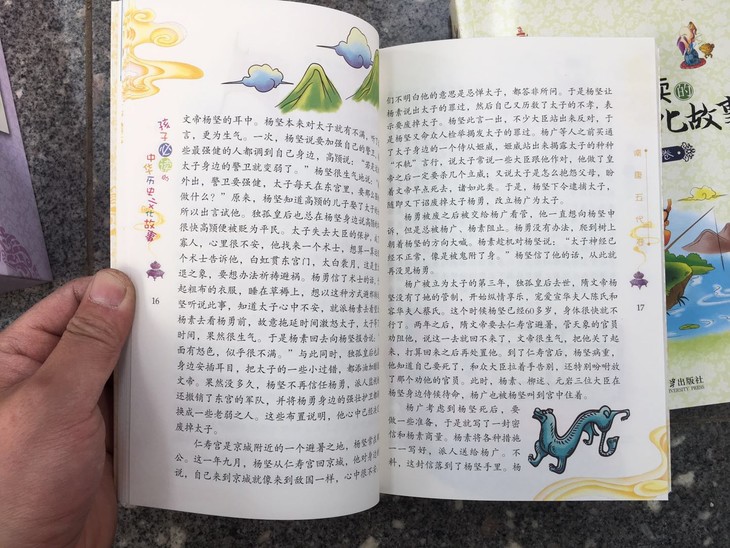 文帝杨坚的耳中。杨坚本来对太子就有不满，听
言，更为生气。一次，杨坚说要加强自己的警卫，
些最强健的人都调到自己身边，高颎说：“若
太子身边的警卫就变弱了。”杨坚很生气地说：
外出，警卫要强健，太子每天在东宫里，要那么
做什么？”原来，杨坚知道高颎的儿子娶了太子
所以出言试他。独孤皇后也总在杨坚身边说高颎
很快高颎便被贬为平民。太子失去大臣的保护，
寡人，心里很不安，他找来一个术士，想算一算
个术士告诉他，白虹贯东宫门，太白袭月，这是
退之象，要想办法祈祷避祸。杨勇信了术士的话，
起粗布的衣服，睡在草褥上，想以这种方式避祸
坚听说此事，知道太子心中不安，就派杨素去看
杨素去看杨勇前，故意拖延时间激怒太子，太子
时间，果然很生气。于是杨素回去向杨坚报告说：
面有怒色，似乎很不满。”与此同时，独孤皇后
身边安插耳目，把太子的一些小过错，都添油加
文帝。果然没多久，杨坚不再信任杨勇，派人监
还撤销了东宫的军队，并将杨勇身边的强壮护卫
换成一些老弱之人。这些布置说明，他心中已经
废掉太子。
仁寿宫是京城附近的一个避暑之地，杨坚常
公。这一年九月，杨坚从仁寿宫回京城，他对身
说，自己来到京城就像来到敌国一样，心中很不
孩子必读的
中华历史文化故事
16
们不明白他的意思是忌惮太子，都答非所问。于是杨坚让
杨素说出太子的罪过，然后自己又历数了太子的不孝，表
示要废掉太子。杨坚此言一出，不少大臣站出来反对，于
是杨坚又命众人检举揭发太子的罪过。杨广等人之前买通
了太子身边的一个侍从姬威，姬威站出来揭露太子的种种
“不轨”言行，说太子常说一些大臣跟他作对，他做了皇
帝之后一定要杀几个立威，又说太子是怎么抱怨父母，盼
着文帝早点死去，诸如此类。于是，杨坚下令逮捕太子，
随即又下诏废掉太子杨勇，改立杨广为太子。
杨勇被废之后被交给杨广看管，他一直想向杨坚申
诉，但是总被杨广、杨素阻止。杨勇没有办法，爬到树上
朝着杨坚的方向大喊。杨素趁机对杨坚说：“太子神经已
经不正常，像是被鬼附了身。”杨坚信了他的话，从此就
再没见杨勇。
杨广被立为太子的第三年，独孤皇后去世，隋文帝杨
坚没有了她的管制，开始纵情享乐，宠爱宣华夫人陈氏和
容华夫人蔡氏。这个时候杨坚已经60多岁，身体很快就不
行了。两年之后，隋文帝要去仁寿宫避暑，管天象的官员
劝阻他，说这一去就回不来了，文帝很生气，把他关了起
来，打算回来之后再处置他。到了仁寿宫后，杨坚病重，
他知道自己要死了，和众大臣拉着手告别，还特别吩咐放
了那个劝他的官员。此时，杨素、柳述、元岩三位大臣在
杨坚身边侍候待命，杨广也被杨坚叫到宫中住着。
杨广考虑到杨坚死后，要
做一些准备，于是就写了一封密
信和杨素商量。杨素将各种措施
一一写好，派人送给杨广。不
料，这封信落到了杨坚手里。杨
隋唐五代
17
读的
化故事
卷
学出版社
IVERSITY PRESS